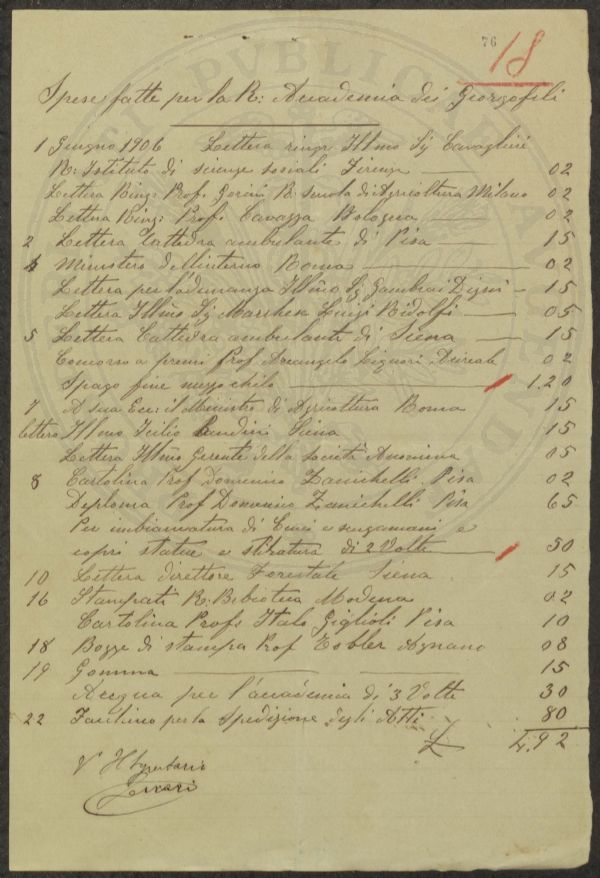 76
18
Spese fatte per la R: Accademia dei Georgofili
1 Giugno 1906 Lettera ringr Illmo Sig Cavaglieri
R: Istituto di scienze sociali Firenze 02
Lettera Ring: Prof. Gorini R. scuola di Agricoltura Milano 02
Lettera Ring: Prof. Cavazza Bologna 02
2 Lettera Cattedra ambulante di Pisa 15
4 Ministero dell'interno Roma 02
Lettera per l'adunanza Illmo Sig Digni 15
Lettera Illmo Sig Marchese Luigi Ridolfi 05
5 Lettera Cattedra ambulante di Siena 15
Concorso a premi Prof Arcangelo Liguori Acireale 02
Spago fine mezzo chilo 1.20
7 A sua Ecc: il Ministro di Agricoltura Roma 15
lettera Illmo Icilio Bandini Siena 15
Lettera Illmo Gerente della Società Anonima 05
8 Cartolina Prof Domenico Zanichelli Pisa 02
Deploma Prof Domenico Zanichelli Pisa 65
Per imbiancatura di Cenci e sciugamani e
copri statue e stiratura di 2 Volte 50
10 Lettera direttore Forestale Siena 15
16 Stampati R: Bebioteca Modena 02
Cartolina Profs Italo Giglioli Pisa 10
18 Bozze di stampa Prof Tobler Agnano 08
19 Gomma 15
Acqua per l'accademia di 3 Volte 30
22 Facchino per la Spedizione degli Atti 80
L 4.92
V° Il Segretario